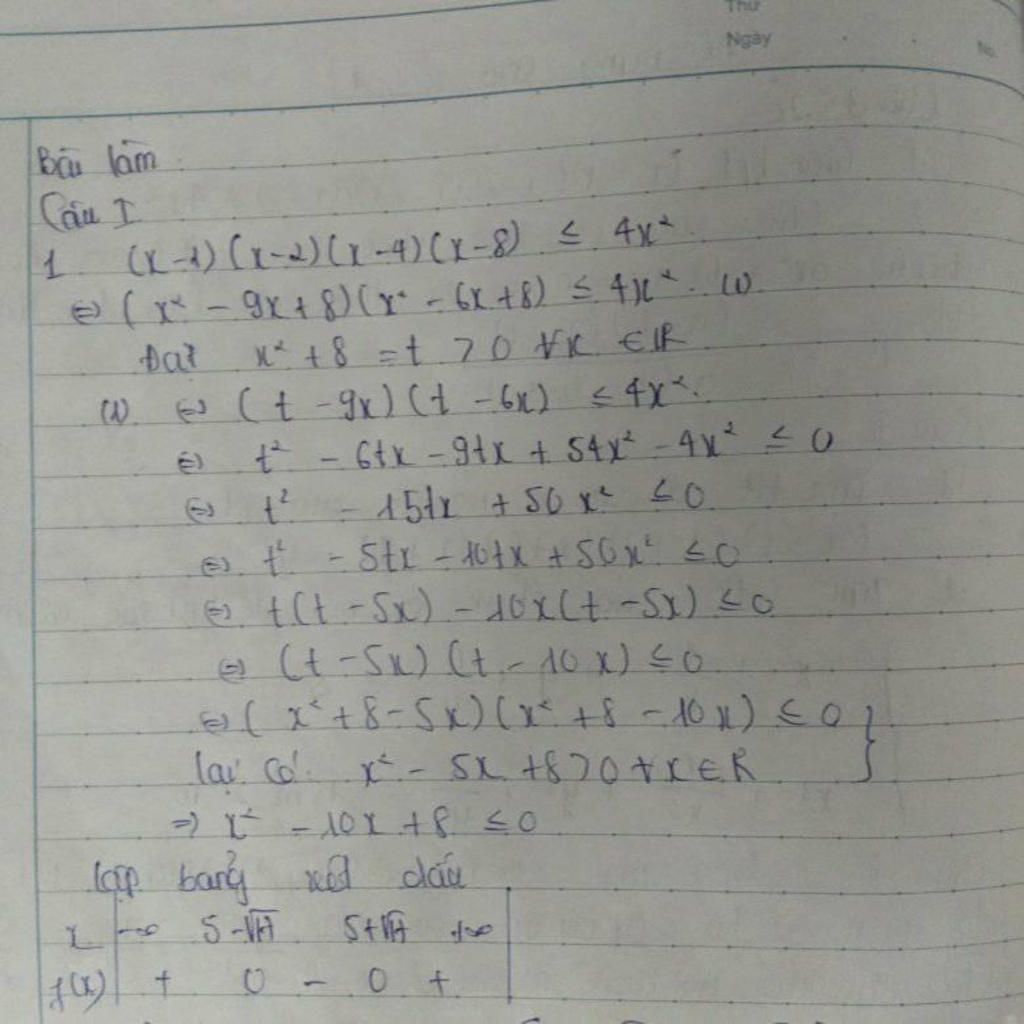 Thứ
Ngày
No.
Bài làm
Câu I
1 (x-1)(x-2)(x-4)(x-8) ≤ 4x²
⇔ (x² - 9x+8)(x² - 6x+8) ≤ 4x². (1)
Đặt x² +8 =t > 0 ∀x ∈ℝ
(1) ⇔ (t -9x)(t -6x) ≤ 4x².
⇔ t² - 6tx - 9tx + 54x² - 4x² ≤ 0
⇔ t² - 15tx + 50x² ≤ 0
⇔ t² - 5tx - 10tx + 50x² ≤ 0
⇔ t(t -5x) - 10x(t -5x) ≤ 0
⇔ (t -5x)(t - 10x) ≤ 0
⇔ (x² +8 -5x)(x² +8 - 10x) ≤ 0 }
lại có x² - 5x +8 > 0 ∀x ∈ R
⇒ x² - 10x + 8 ≤ 0
lập bảng xét dấu
x -∞ 5-√17 5+√17 +∞
f(x) + 0 - 0 +